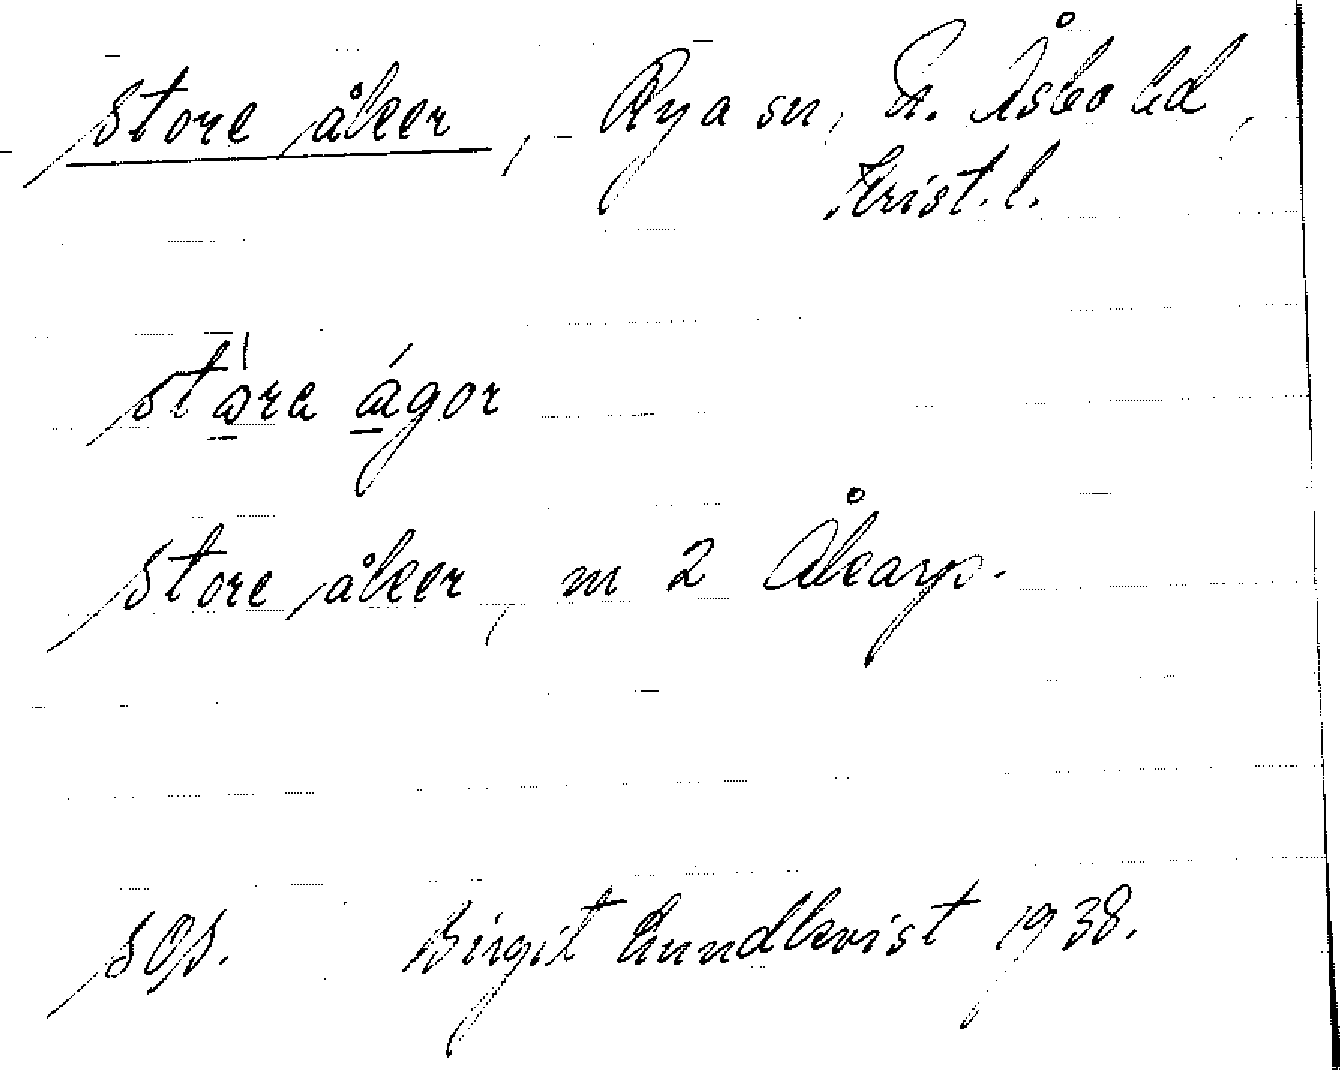 Store åker, Rya sn, N. Åsbo hd,
Krist. l.
stora ágor
Store åker, m 2 Åkarp.
SOS. Birgit Lundkvist 1938.